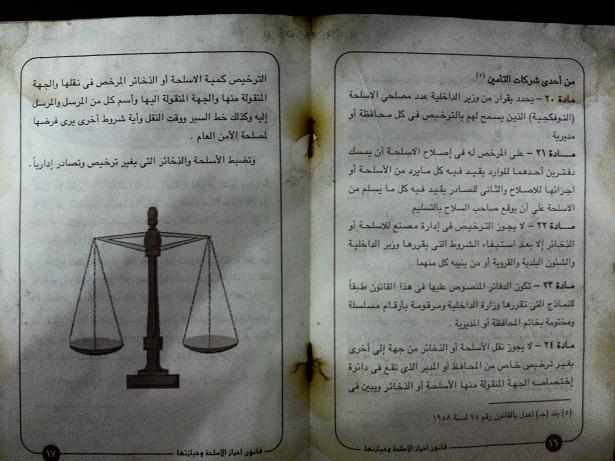 من أحدى شركات التأمين (٥).
مادة ٢٠ – يحدد بقرار من وزير الداخلية عدد مصلحى الاسلحة
(التوفكجية) الذين يسمح لهم بالترخيص فى كل محافظة أو
مديرية .
مــادة ٢١ – على المرخص له فى إصلاح الاسلحة أن يمسك
دفترين أحدهما للوارد يقيد فيه كل مايرد من الأسلحة أو
اجزائها للإصلاح والثانى للصادر يقيد فيه كل ما يسلم من
الاسلحة على أن يوقع صاحب السلاح بالتسليم .
مــادة ٢٢ – لا يجوز الترخيص فى إدارة مصنع للاسلحة أو
الذخائر إلا بعد استيفاء الشروط التى يقررها وزير الداخلية
والشئون البلدية والقروية أو من ينيبه كل منهما .
مادة ٢٣ – تكون الدفاتر المنصوص عليها فى هذا القانون طبقاً
للنماذج التى تقررها وزارة الداخلية ومرقومة بأرقام مسلسلة
ومختومة بخاتم المحافظة أو المديرية .
مادة ٢٤ – لا يجوز نقل الأسلحة أو الذخائر من جهة إلى أخرى
بغير ترخيص خاص من المحافظ أو المدير الذى تقع فى دائرة
إختصاصه الجهة المنقولة منها الأسلحة أو الذخائر ويبين فى
(٥) بند (جـ) تعدل بالقانون رقم ٧٥ لسنة ١٩٥٨ .
١٦
قانون احراز الاسلحة وحيازتها
الترخيص كمية الاسلحة أو الذخائر المرخص فى نقلها والجهة
المنقولة منها والجهة المنقولة اليها وأسم كل من المرسل والمرسل
إليه وكذلك خط السير ووقت النقل وأية شروط أخرى يرى فرضها
لمصلحة الأمن العام .
وتضبط الأسلحة والذخائر التى بغير ترخيص وتصادر إدارياً .
قانون احراز الاسلحة وحيازتها
١٧